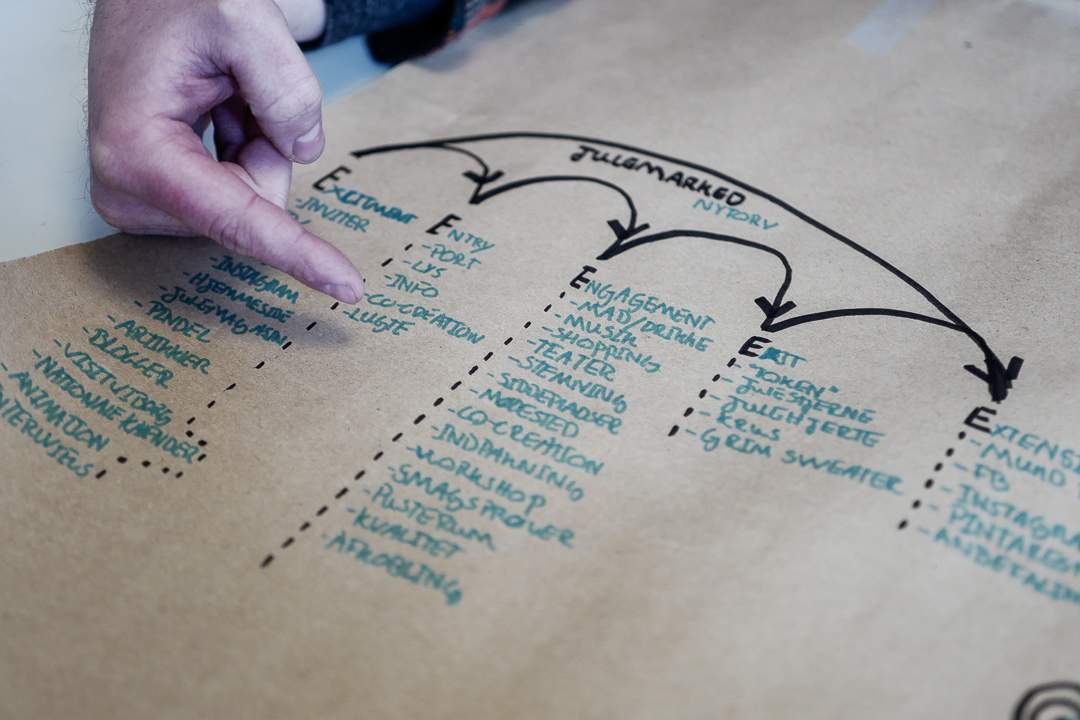 JULEMARKED
NYTORV
EXCITMENT
-INVITER
-INSTAGRAM
-HJEMMESIDE
-JULEMAGASIN
-PINDEL
-ARTIKKER
BLOGGER
-VISITVIBORG
-NATIONNE KALENDER
-ANIMATION
ENTRY
-PORT
-LYS
-INFO
-CO-CREATION
-LUGTE
ENGAGEMENT
-MAD/DRIKKE
-MUSIK
-SHOPPING
-TEATER
-STEMNING
-SIDDEPLADSER
-MØDESTED
-CO-CREATION
-INDPAKNING
-WORKSHOP
-SMAGSPRØVER
-PUSTERUM
-KVALITET
-AFKOBLING
EXIT
-"TOKEN"
-JULESTJERNE
-JULEHJERTE
-KRUS
-GRIM SWEATER
EXTENSI
-MUND
-FB
-INSTAGRA